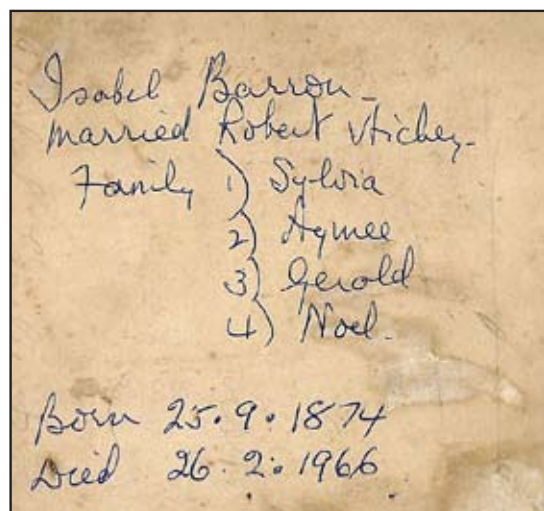 Isabel Barron -
married Robert Hickey -
Family 1) Sylvia
2) Aymee
3) Gerold
4) Noel.
Born 25.9.1874
Died 26.2.1966